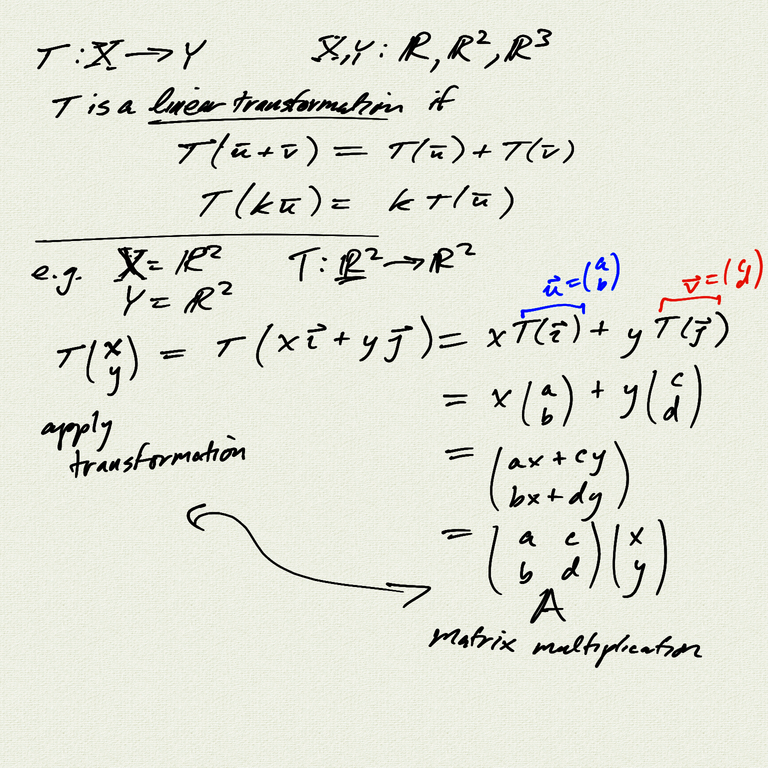 T : X → Y    X, Y : ℝ, ℝ², ℝ³
T is a linear transformation if
T(ū + v̄) = T(ū) + T(v̄)
T(kū) = kT(ū)
e.g. X = ℝ²    T : ℝ² → ℝ²
Y = ℝ²
u⃗ = (a b)    v⃗ = (c d)
T(x y) = T(x i⃗ + y j⃗) = x T(i⃗) + y T(j⃗)
= x(a b) + y(c d)
apply
transformation
= (ax + cy
bx + dy)
= (a c
b d)(x
y)
A
matrix multiplication